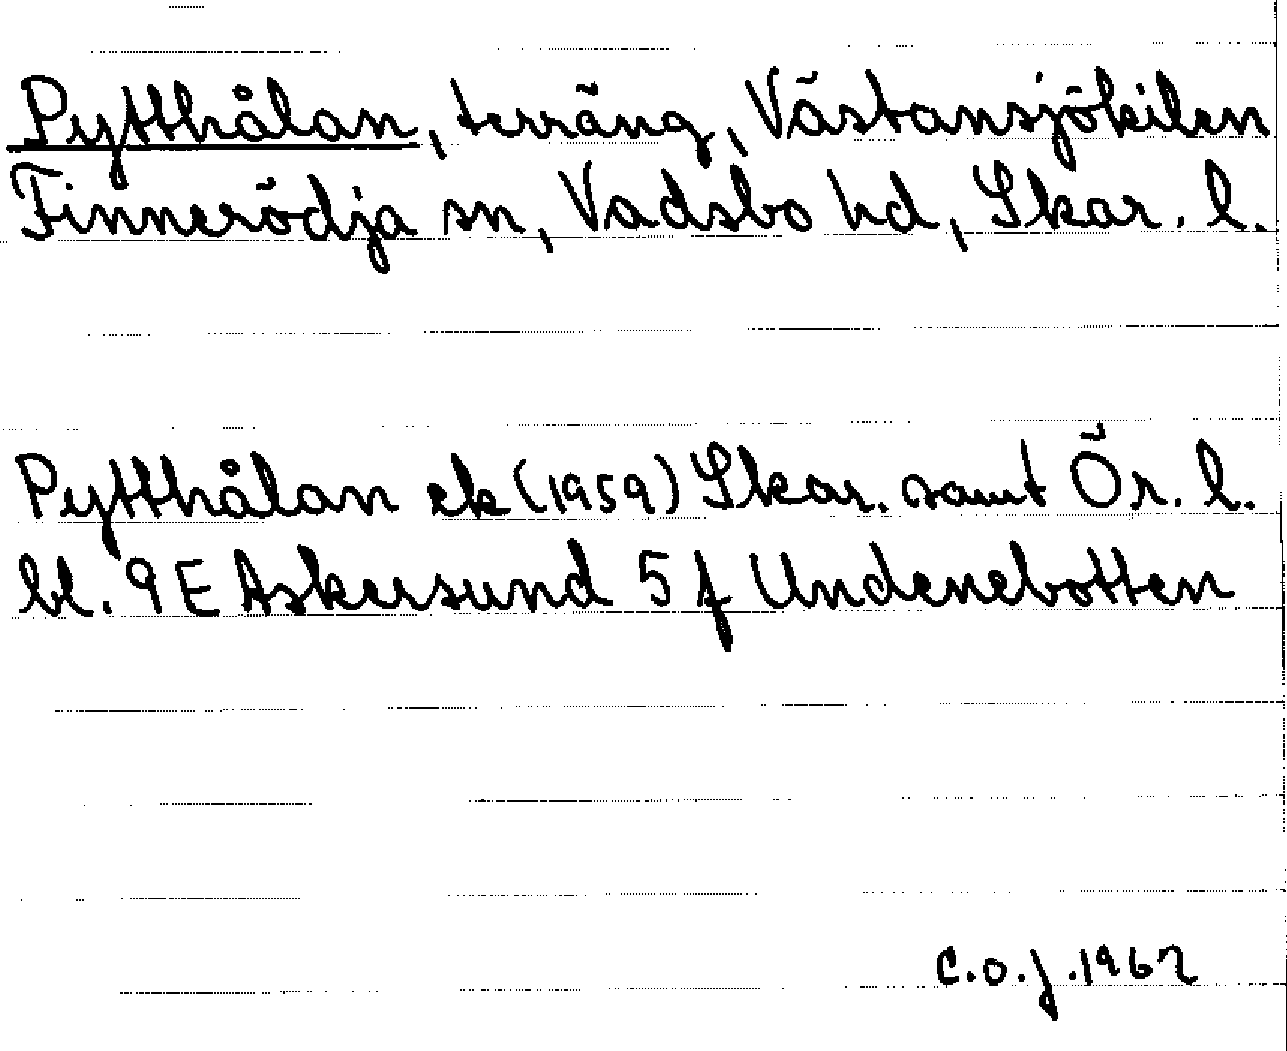 Pytthålan, terräng, Västansjökilen
Finnerödja sn, Vadsbo hd, Skar. l.
Pytthålan ek (1959) Skar. samt Ör. l.
bl. 9 E Askersund 5 f Undenebotten
C.O.J. 1962